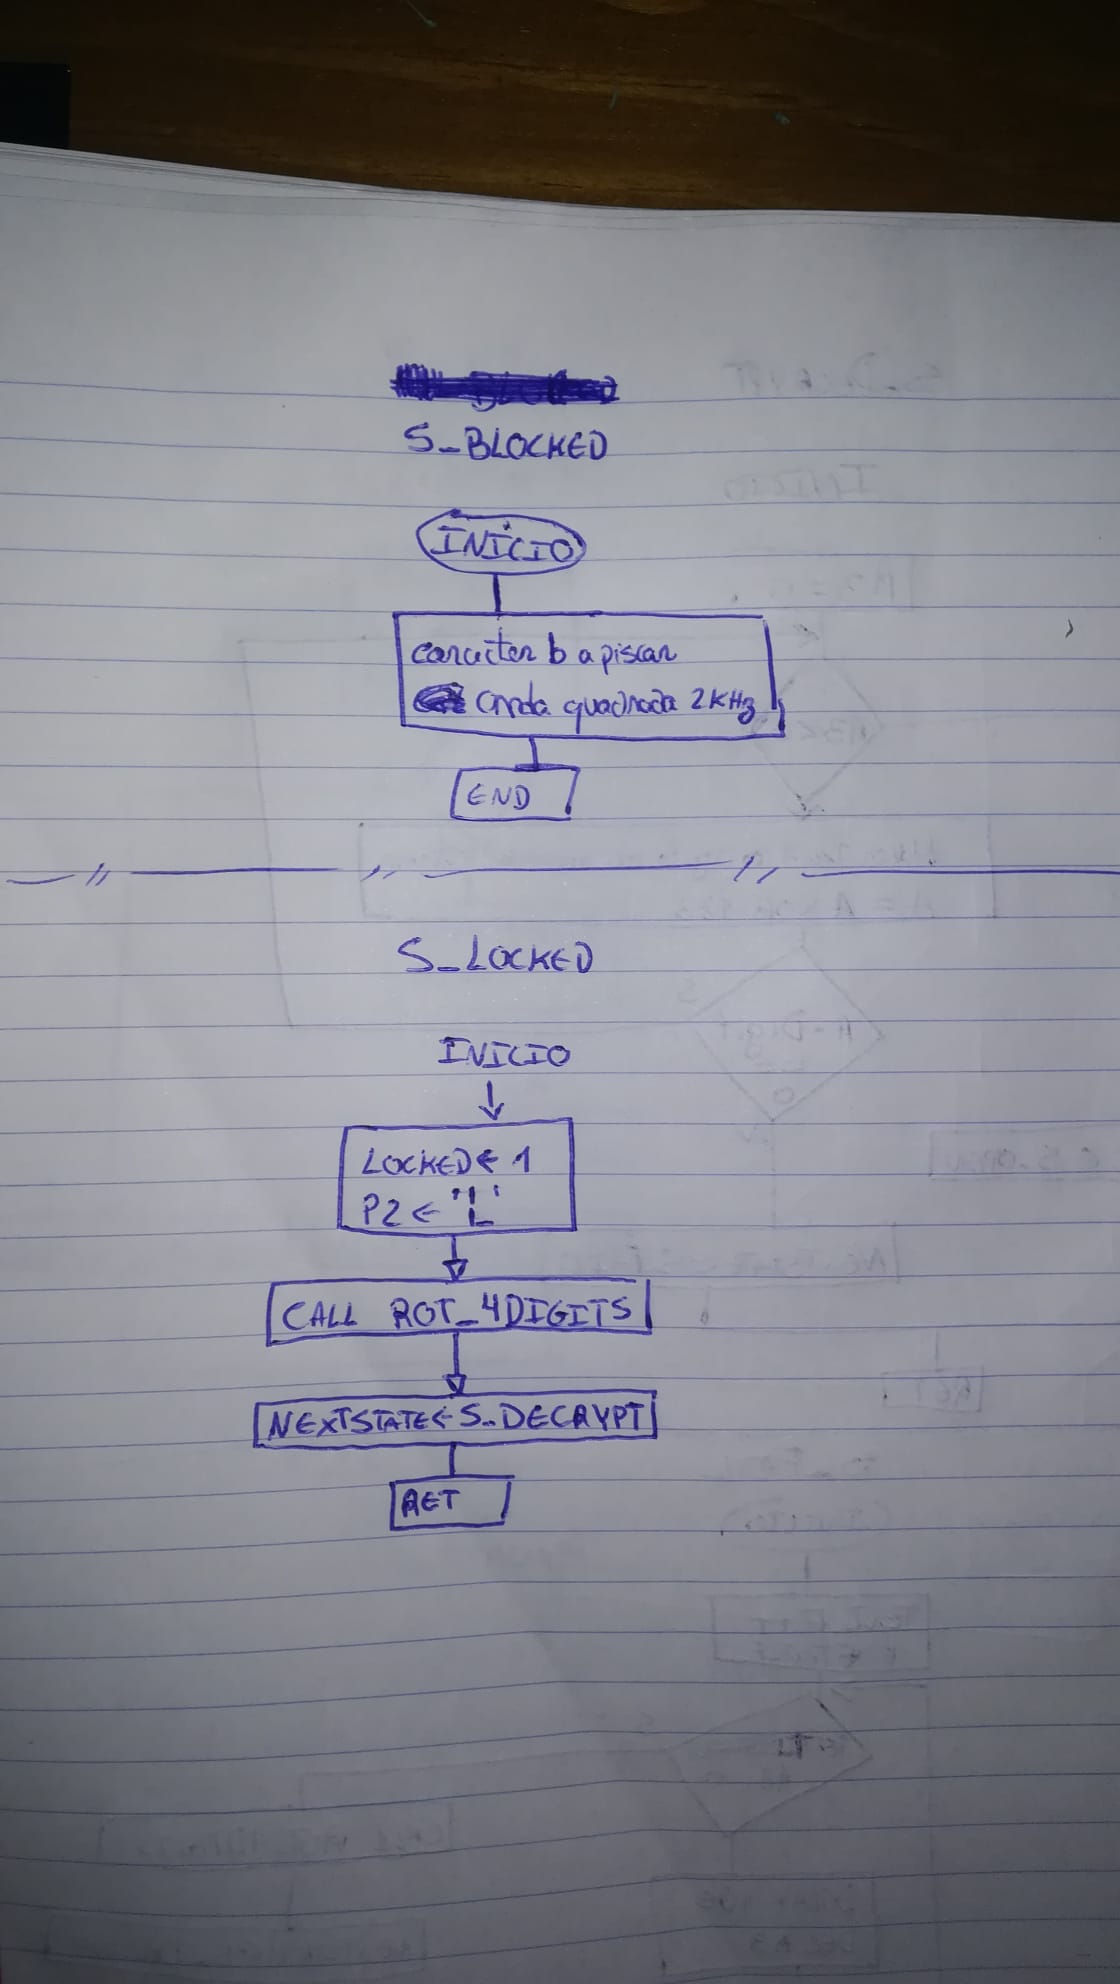 S_BLOCKED
INICIO
caracter b a piscar
onda quadrada 2KHz
END
S_LOCKED
INICIO
LOCKED ← 1
P2 ← 'L'
CALL ROT_4DIGITS
NEXTSTATE ← S_DECRYPT
RET